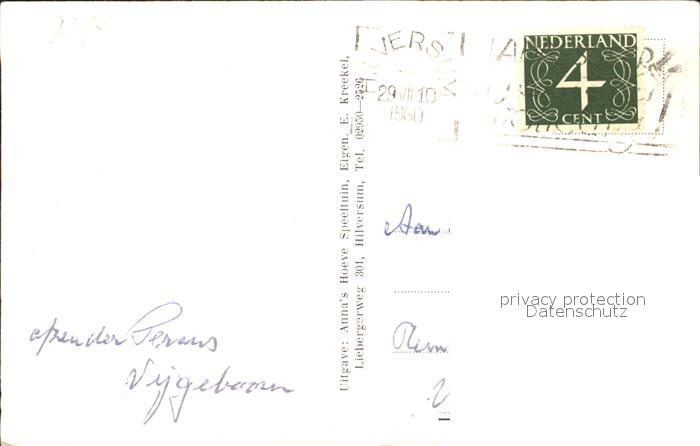 HILVERSUM
29 VII 10
1960
NEDERLAND
4
CENT
Uitgave: Anna's Hoeve Speeltuin, Eigen. E. Kreekel,
Liebergerweg 301, Hilversum, Tel. 02950-2526
Aan
privacy protection
Datenschutz
afzender
Vijgeboom